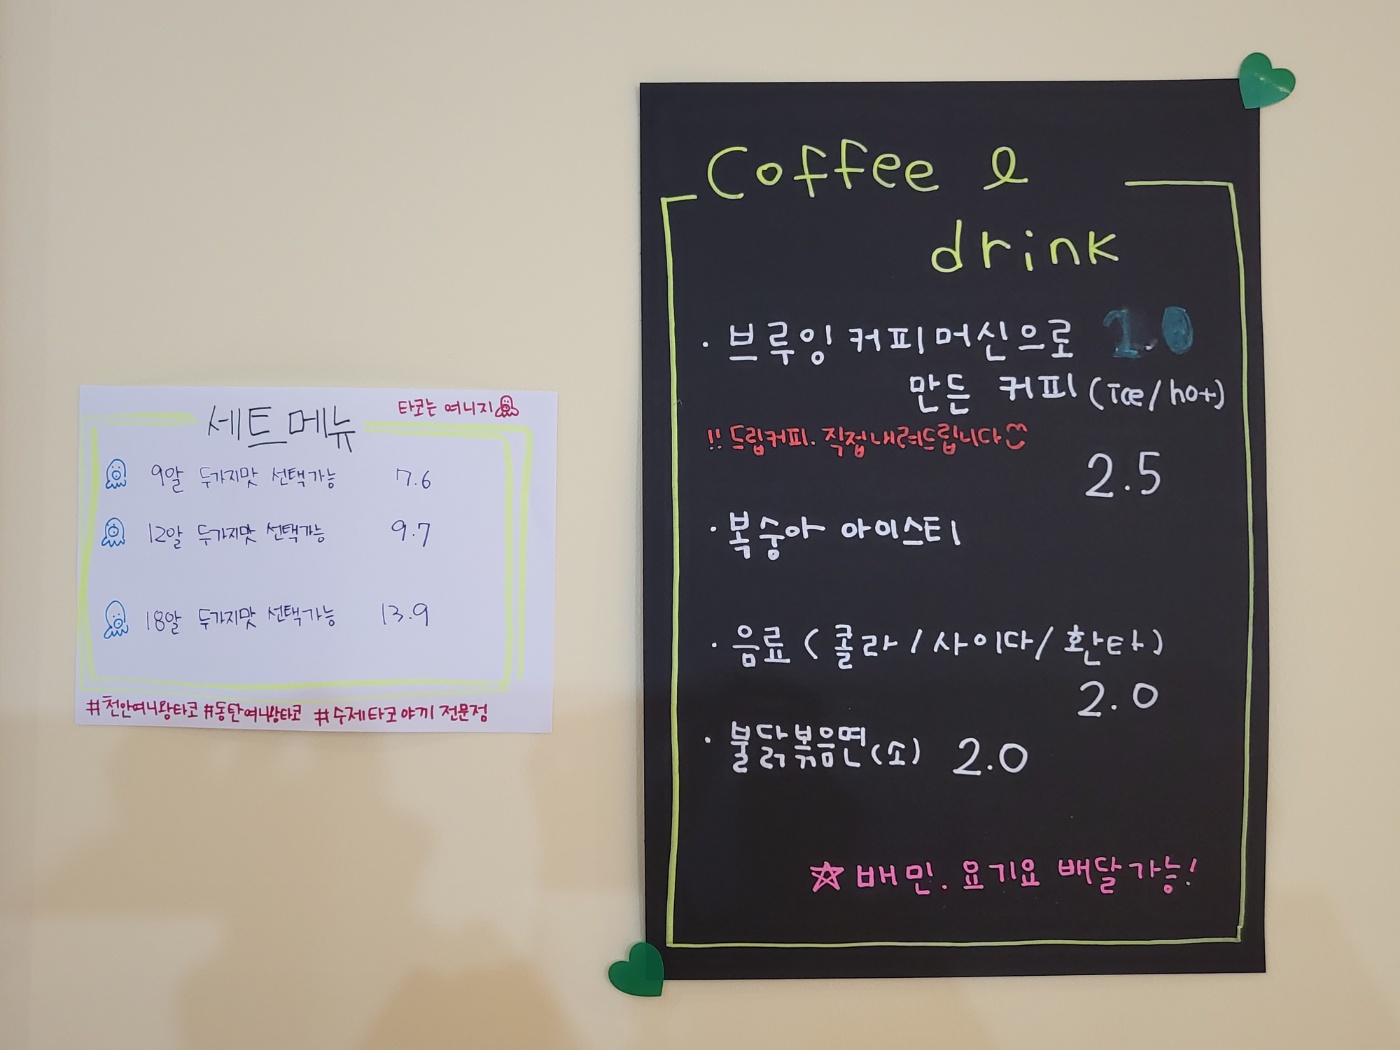 세트메뉴
타코는 여니지
9알 두가지맛 선택가능 7.6
12알 두가지맛 선택가능 9.7
18알 두가지맛 선택가능 13.9
#천안여니왕타코 #동탄여니왕타코 #수제타코야끼 전문점
Coffee &
drink
· 브루잉 커피머신으로 1.0
만든 커피 (Ice/hot)
!! 드립커피. 직접내려드립니다
2.5
· 복숭아 아이스티
· 음료 ( 콜라 / 사이다/ 환타)
2.0
· 불닭볶음면(소) 2.0
☆ 배민. 요기요 배달가능!